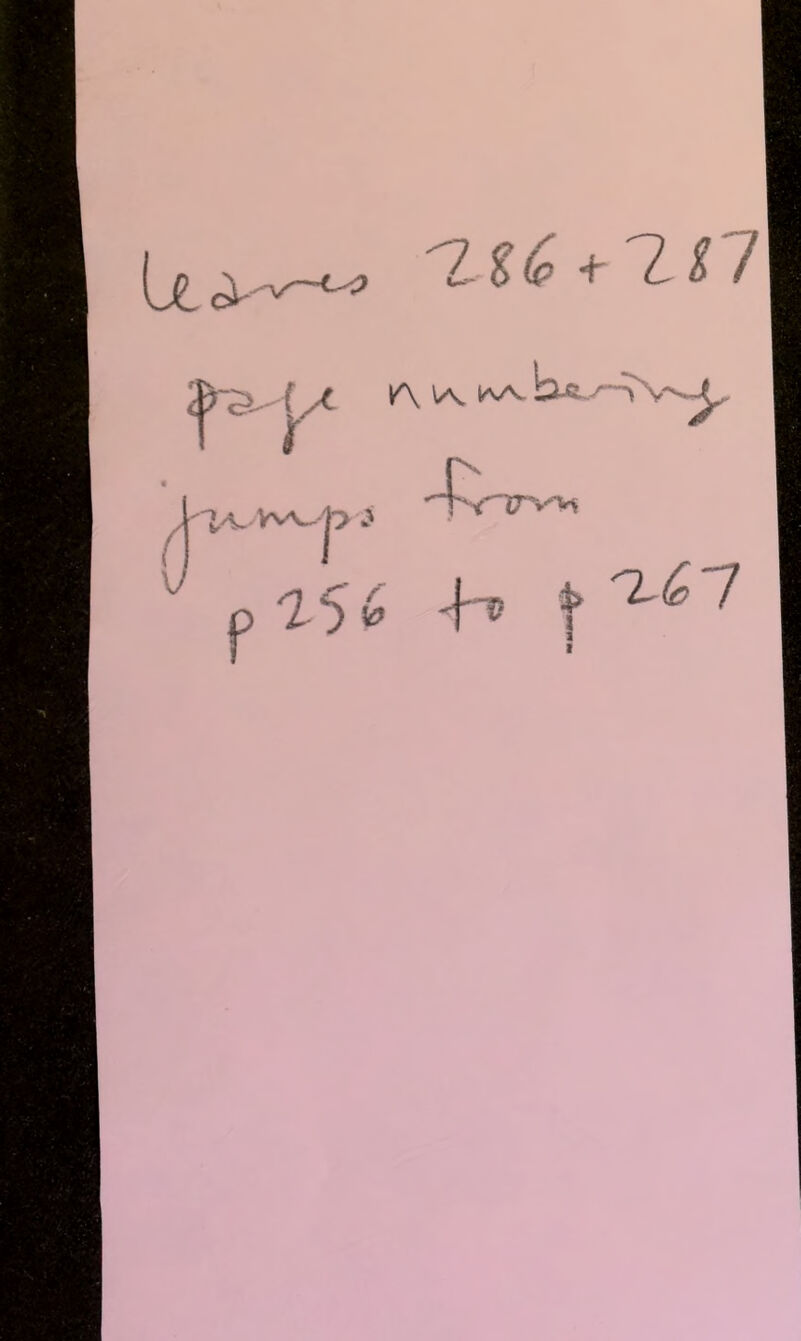 leaves 286 + 287
page numbering
jumps from
p 256 to p 267